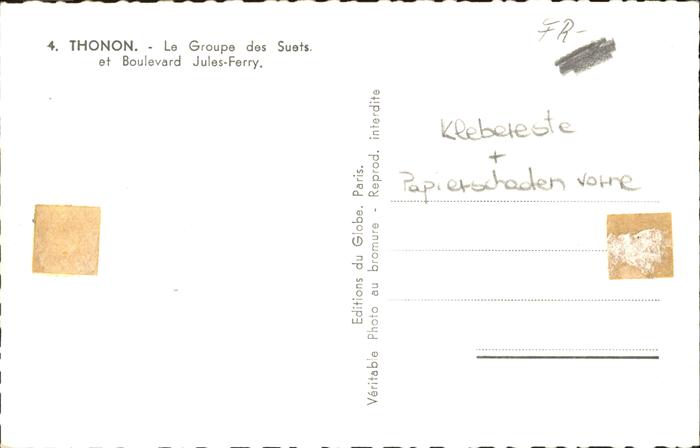 4. THONON. - Le Groupe des Suets.
et Boulevard Jules-Ferry.
FR-
Editions du Globe. Paris.
Véritable Photo au bromure - Reprod. interdite
Klebereste
+
Papierschaden vorne